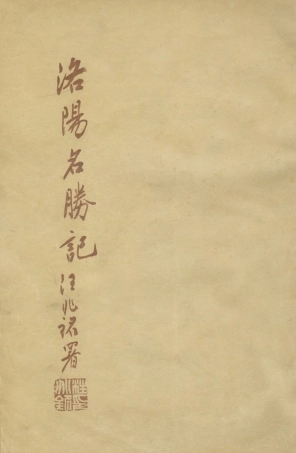 洛陽名勝記汪兆銘署